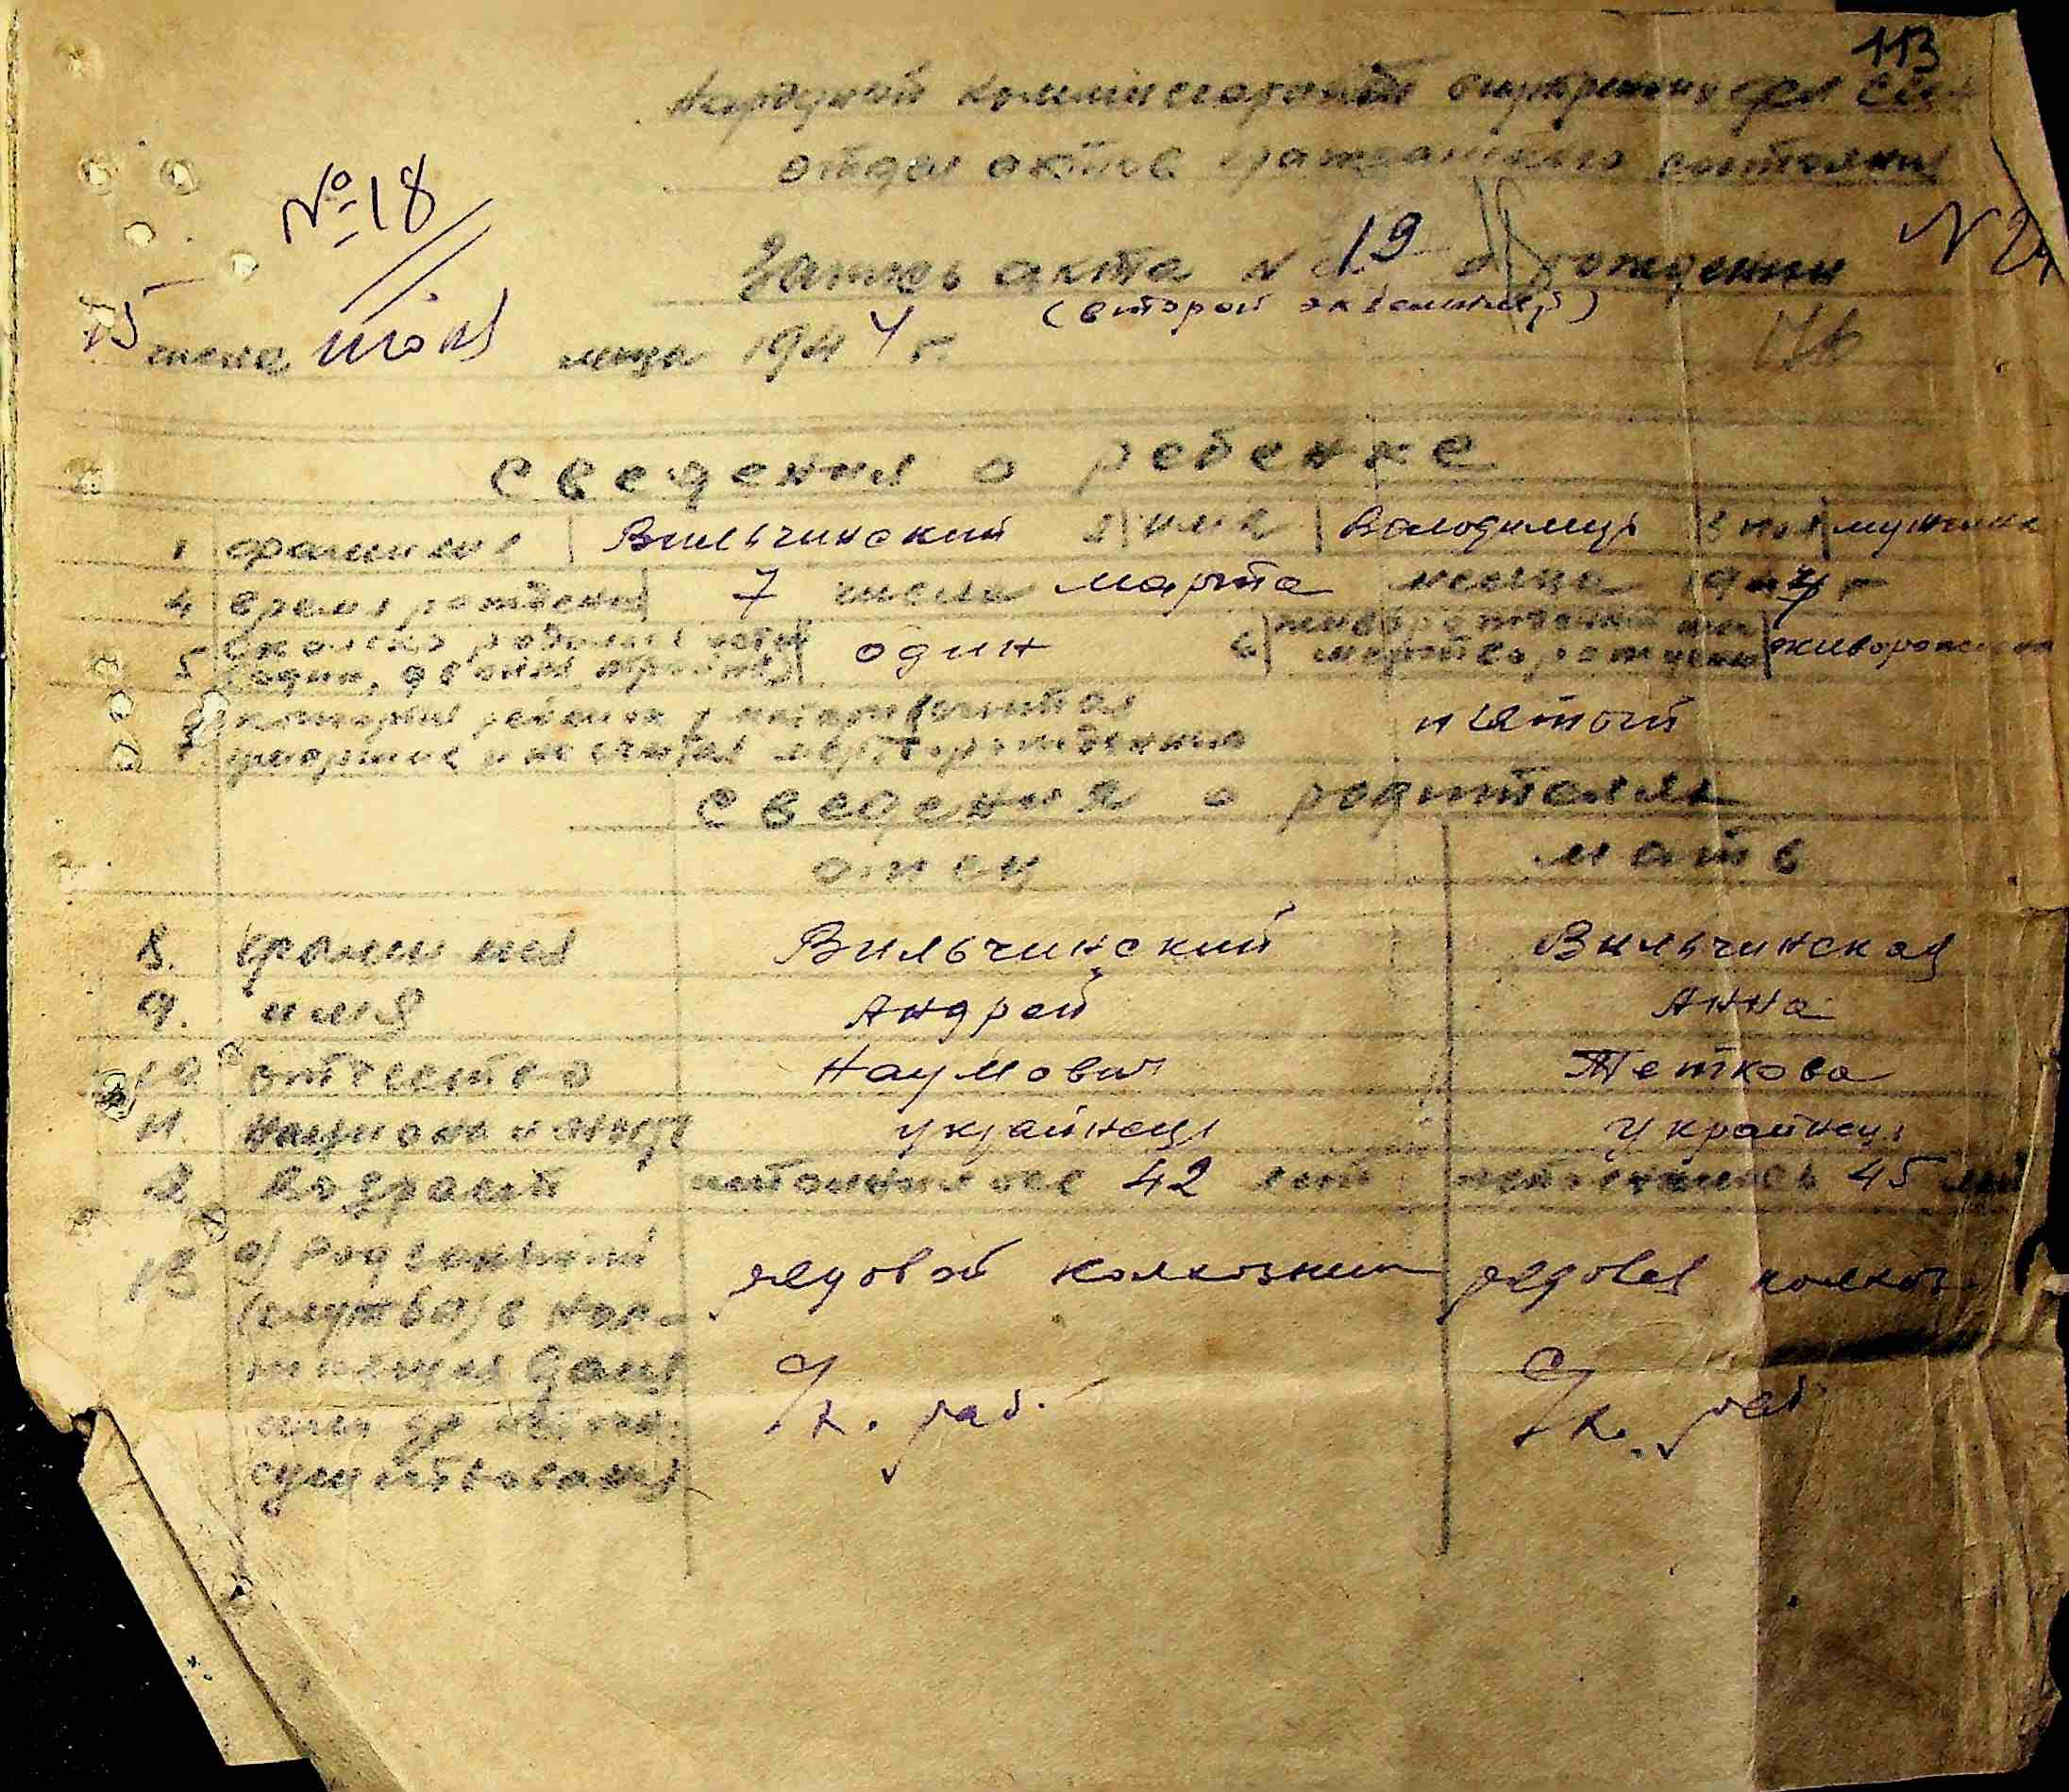 113
Народный комиссариат внутренних дел
отдел актов гражданского состояния
№ 18
Запись акта № 19 о рождении
(второй экземпляр)
15 числа мая м-ца 1944 г.
Сведения о ребенке
1 фамилия Вильчинский 2 имя Володимир 3 пол мужчина
4 время рождения 7 числа марта месяца 1944 г
5 сколько родилось детей один 6 живорожденный или
(один, двойня, тройня) мертворожденный живорожденна
7 который ребенок у матери (считая
умерших и не считая мертворожденных пятый
Сведения о родителях
отец мать
8. фамилия Вильчинский Вильчинская
9. имя Андрей Анна
10 отчество Наумович Теткова
11. национальность украинец украинец
12 возраст исполнилось 42 лет исполнилось 45 лет
13 а) род занятий рядовой колхозник рядовая колхоз.
(служба) в нас-
тоящее время с/х. раб. с/х. раб
существования